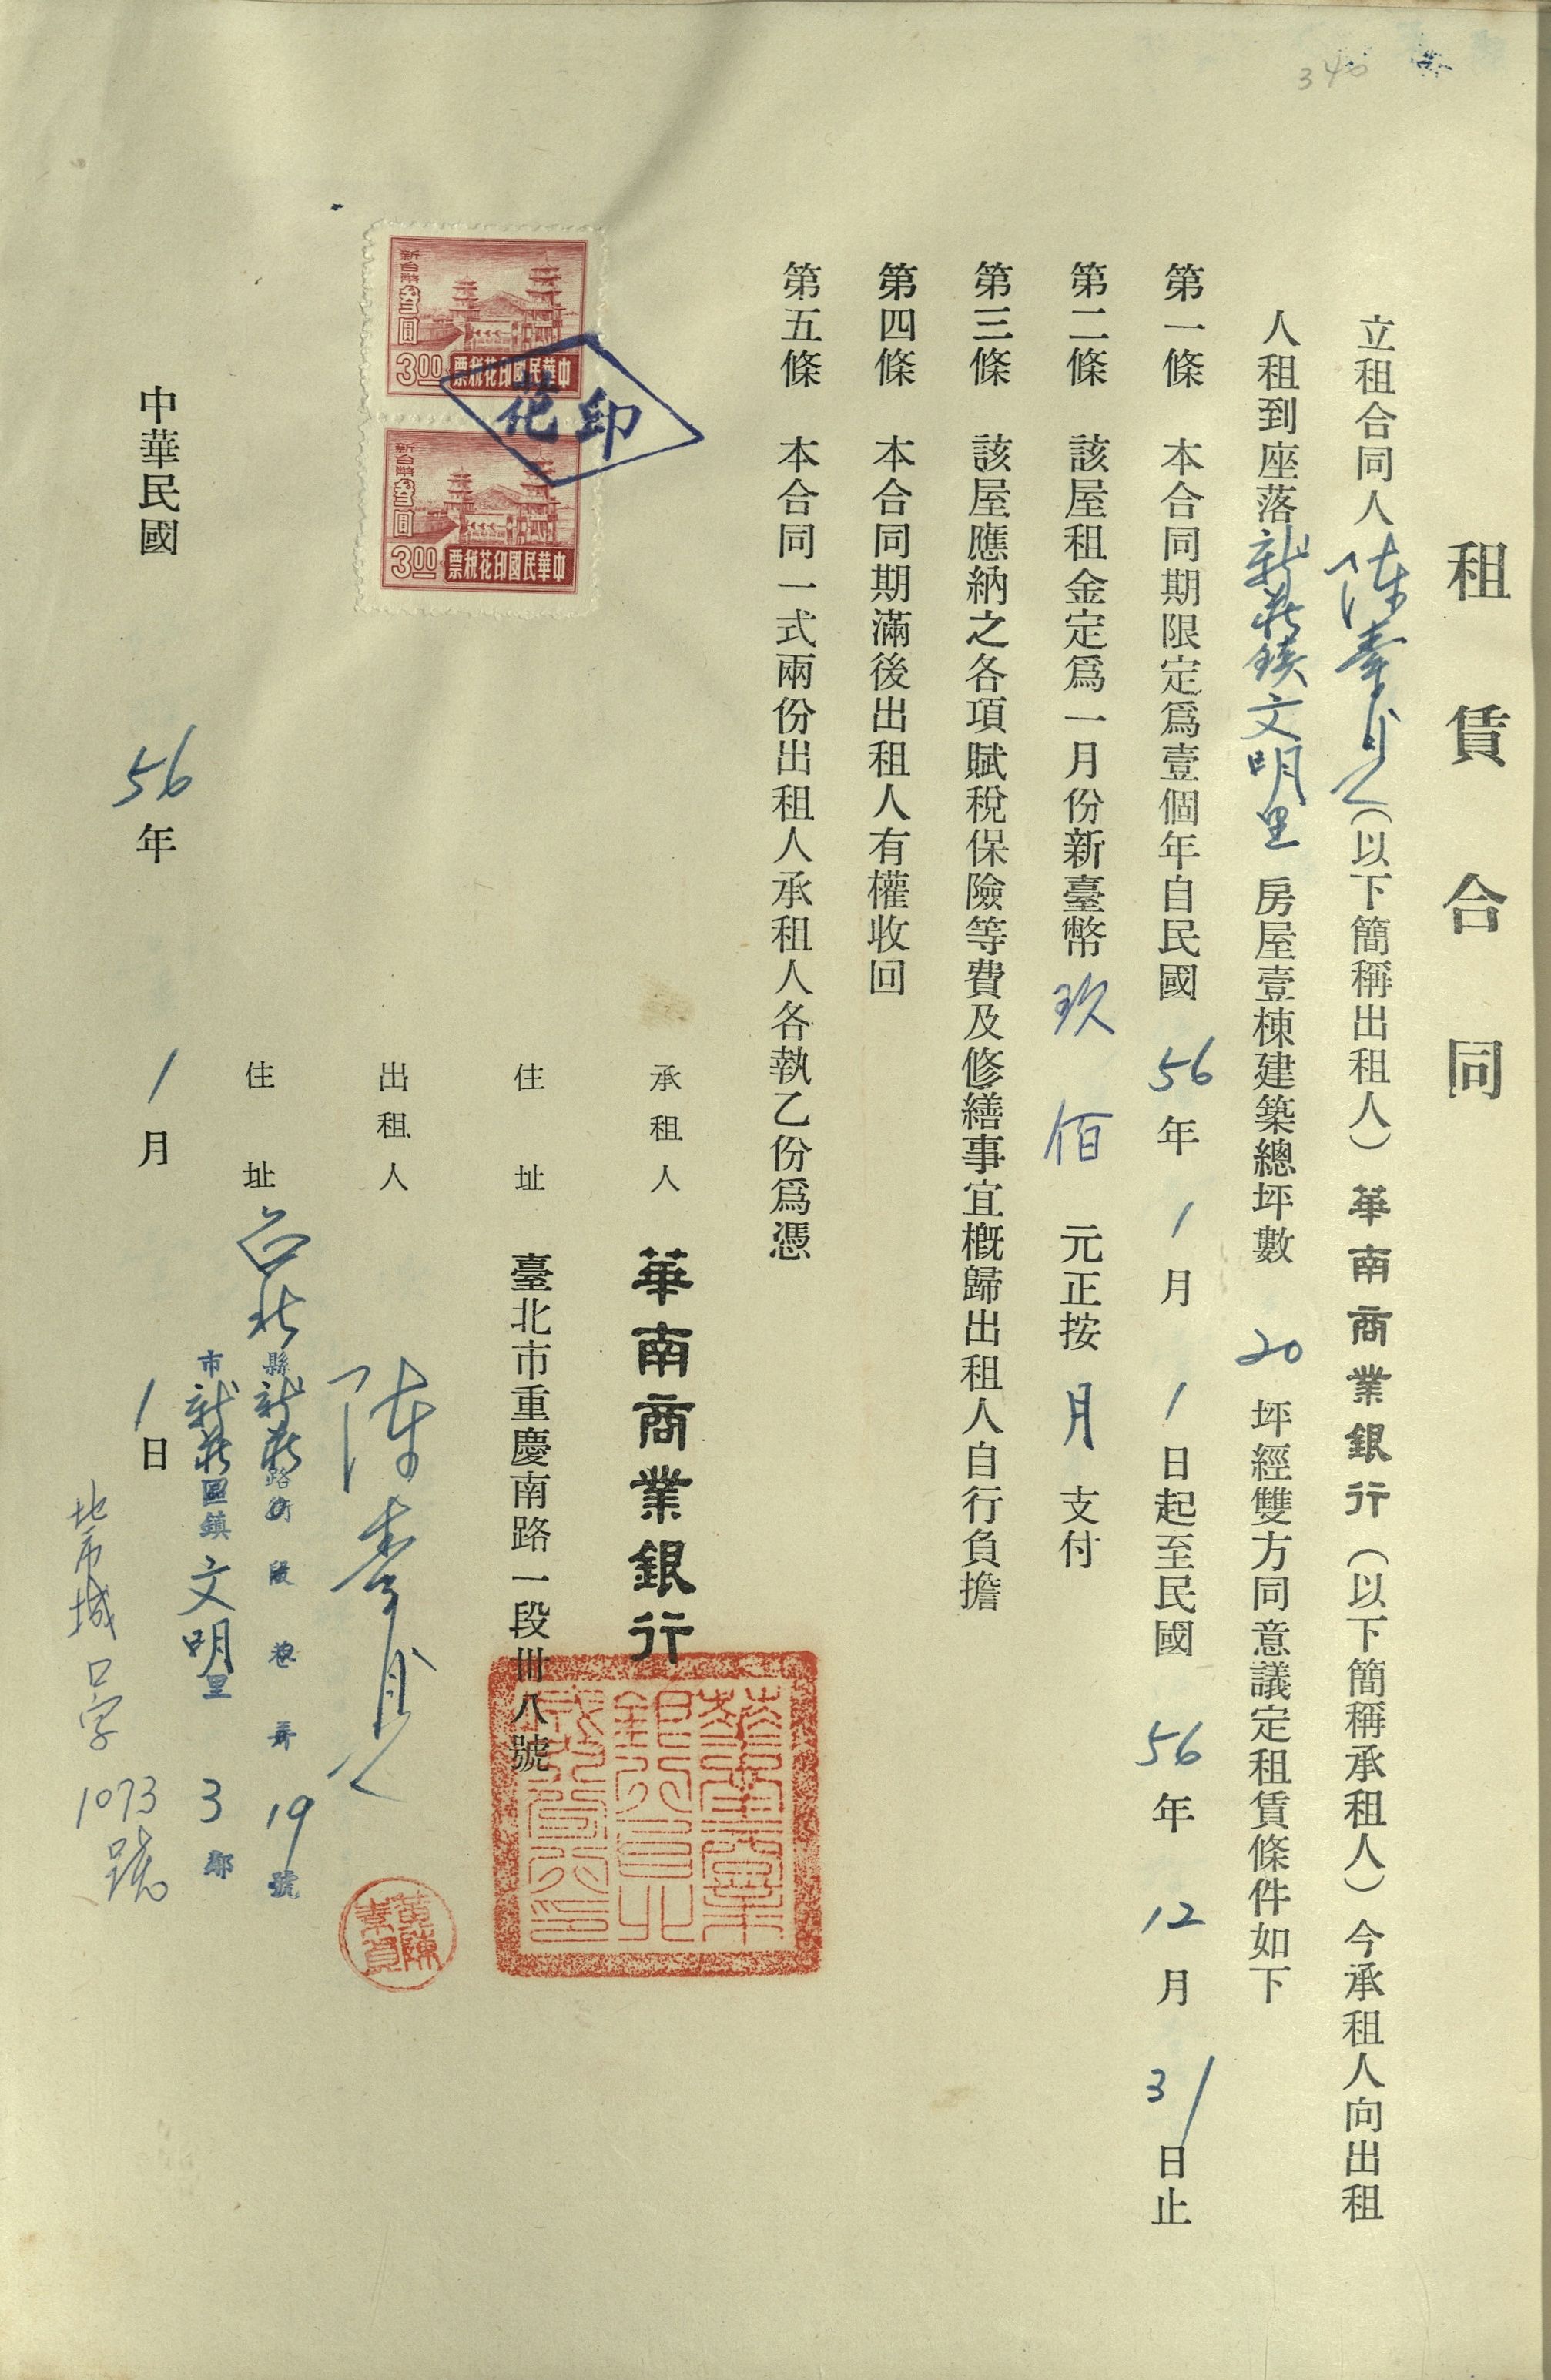 340
租賃合同
立租合同人陳素貞(以下簡稱出租人)華南商業銀行(以下簡稱承租人)今承租人向出租
人租到座落新莊鎮文明里房屋壹棟建築總坪數20坪經雙方同意議定租賃條件如下
第一條 本合同期限定爲壹個年自民國56年1月1日起至民國56年12月31日止
第二條 該屋租金定爲一月份新臺幣玖佰元正按月支付
第三條 該屋應納之各項賦稅保險等費及修繕事宜槪歸出租人自行負擔
第四條 本合同期滿後出租人有權收回
第五條 本合同一式兩份出租人承租人各執乙份爲憑
新台幣叁圓
3.00
票稅花印國民華中
新台幣叁圓
3.00
票稅花印國民華中
花印
承租人 華南商業銀行
住址 臺北市重慶南路一段卅八號
出租人 陳素貞
黃陳素貞
住址 台北
縣新莊路街 段 巷 弄 19號
市新莊區鎮文明里 3鄰
中華民國 56年 1月 1日
1073號